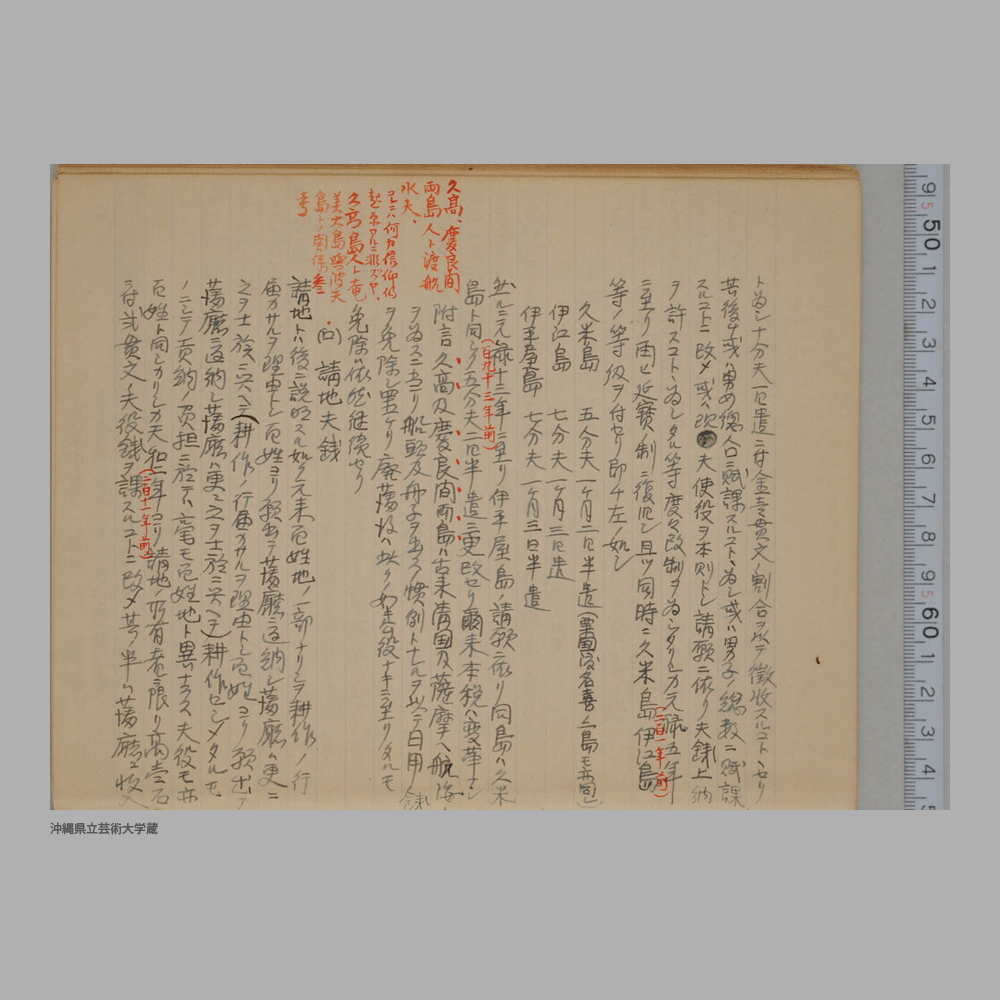 トナシ十分夫一人ニ付金壱貫文ノ割合ヲ以テ徴收スルコトヽセリ
其後或ハ男女總人口ニ賦課スルコトヽ為シ或ハ男子ノ總数ニ賦課
スルコトニ改メ或ハ 夫使役ヲ本則トシ請願ニ依リ夫銭上納
ヲ許スコトヽ為シタル等度々改制ヲ為シタリシカ元禄五年
(二百一年前)
ニ至リ再ヒ延寶ノ制ニ復旧シ且ツ同時ニ久米島伊江島
等ノ等級ヲ付セリ即チ左ノ如シ
久米島 五分夫 一ヶ月二日半遣(粟国渡名喜ノ二島モ亦同)
伊江島 七分夫 一ヶ月三日遣
伊平屋島 七分夫 一ヶ月三日半遣
然ルニ元禄十三年ニ至リ伊平屋島ノ請願ニ依リ同島ハ久米
(百九十三年前)
島ト同シク五分夫二日半遣ニ更改セリ爾来本税ハ変革ナシ
附言 久高及慶良間両島ハ古来清国及薩摩ヘ航海
ヲ為スニ当リ船頭及舟子ヲ出ス慣例トナレルヲ以テ日用銭
ヲ免除シ置ケリ廃藩後ハ此ノ如キ公役ナキニ至リタルモ
免除ハ依然継続セリ
久高、慶良間
両島人ト渡航
水夫、
コレニハ何カ信仰的
起原アルニ非ズヤ、
久高島人ト奄
美大島與波天
島トノ関係参
考
(ロ) 請地夫銭
請地トハ後ニ説明スル如ク元来百姓地ノ一部ナリシヲ耕作ノ行
届カサルヲ理由トシ百姓ヨリ願出テ藩廳ニ返納シ藩廳ハ更ニ
之ヲ士族ニ与ヘテ(耕作ノ行届カサルヲ理由トシ百姓ヨリ願出テ
藩廳ニ返納シ藩廳ハ更ニ之ヲ士族ニ与ヘテ)耕作セシメタルモ
ノニシテ貢納ノ負担ニ於テハ毫モ百姓地ト異ナラス夫役モ亦
百姓ト同シカリシカ天和二年ヨリ請地ノ所有者ニ限リ高壱石
(二百十一年前)
ニ付弐貫文ノ夫役銭ヲ課スルコトニ改メ其ノ半ハ藩廳ニ收入
沖縄県立芸術大学蔵